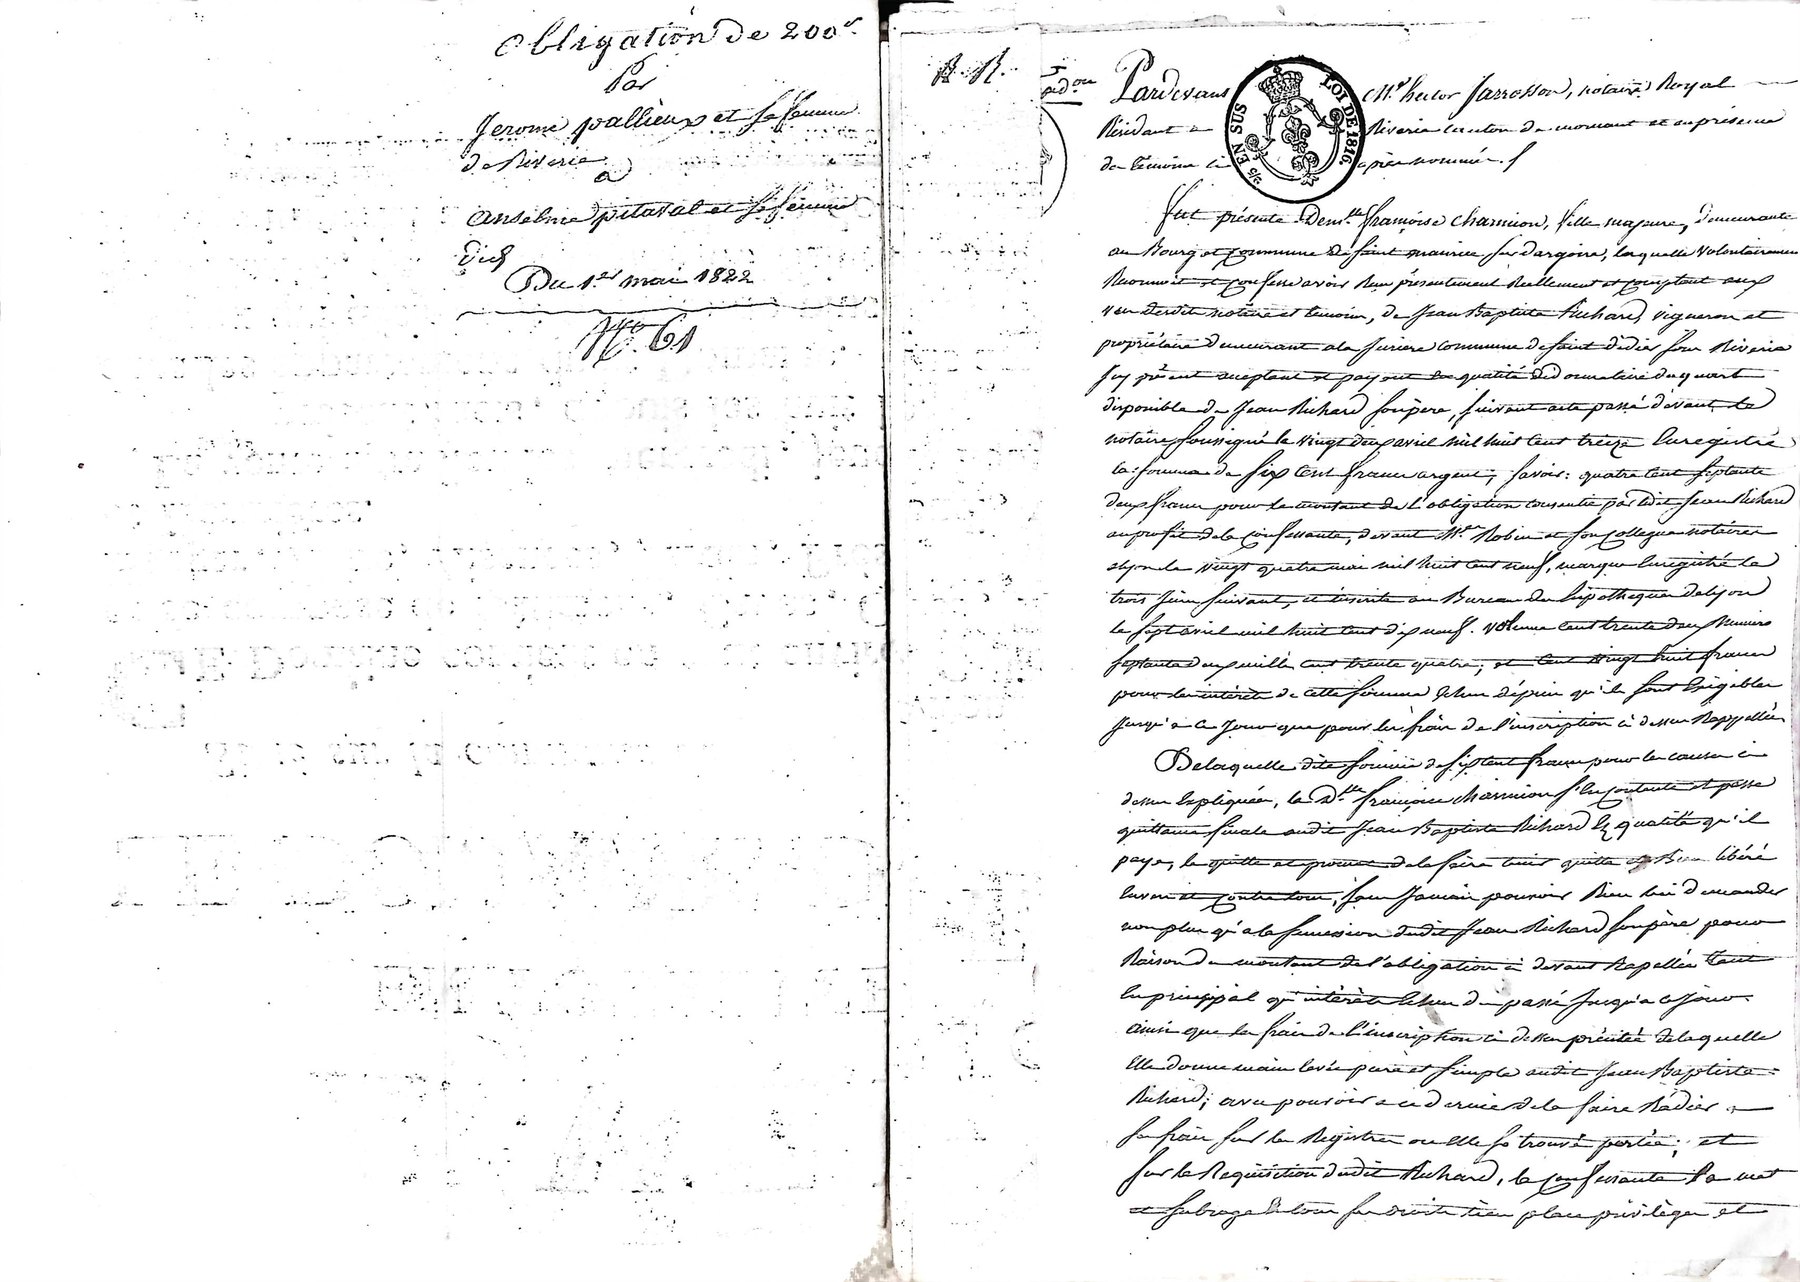 Obligation de 200f
Par
Jerome pallieux et sa femme
de Riverie
a
Anselme pitaval et sa femme
Du 1er mai 1822
No. 61
R. R.
Pardevant Me hector Jarrosson, notaire Royal
Résidant a Riverie canton de mornant et en présence
de témoins ci après nommés.
EN SUS
LOI DE 1816
Fut présente Demlle françoise charmion, fille majeure, demeurante
au Bourg et commune de saint maurice sur dargoire, laquelle volontairement
Reconnoit et confesse avoir Reçu présentement Reellement et comptant aux
vu desdits notaire et temoins, de Jean Baptiste Richard, vigneron et
propriétaire demeurant a la commune de saint didier sous Riverie
Icy présent acceptant et payant en qualité de donnataire du quart
disponible de Jean Richard son père, suivant acte passé devant le
notaire soussigné le vingt deux avril mil huit cent treize Enregistré
la somme de six cent francs argent; savoir: quatre cent septante
deux francs pour le montant de l'obligation consentie par ledit Jean Richard
au profit de la confessante, devant Me Robin et son collegue notaires
a lyon le vingt quatre mai mil huit cent neuf, Enregistré le
trois juin suivant, et inscrite au Bureau des hypotheques de lyon
le sept avril mil huit cent dix neuf. volume cent trente deux Numero
septante deux mille cent trente quatre; et cent vingt huit francs
pour les intérêts de cette somme Echus depuis qu'ils sont Exigibles
jusqu'a ce jour que pour les frais de l'inscription ci dessus Rappellée
De laquelle dite somme de six cent francs pour les causes ci
dessus Expliquées, la Dlle françoise charmion s'En contente et passe
quittance finale audit Jean Baptiste Richard En qualité qu'il
paye, le quitte et promet de le faire tenir quitte et Bien libéré
Envers et contre tous, sans Jamais pouvoir Rien lui demander
non plus qu'a la succession dudit Jean Richard son père pour
Raison du montant de l'obligation ci devant Rapellée tant
En principal qu'intérêts Echus du passé jusqu'a ce jour
ainsi que les frais de l'inscription ci dessus précitée de laquelle
Elle donne main levée pure et simple audit Jean Baptiste
Richard; avec pouvoir a ce dernier de la faire Radier a
ses frais sur les Registres ou Elle se trouve portée; et
sur la Requisition dudit Richard, la confessante l'a met
et subroge En tous ses droits lieu place privilèges et